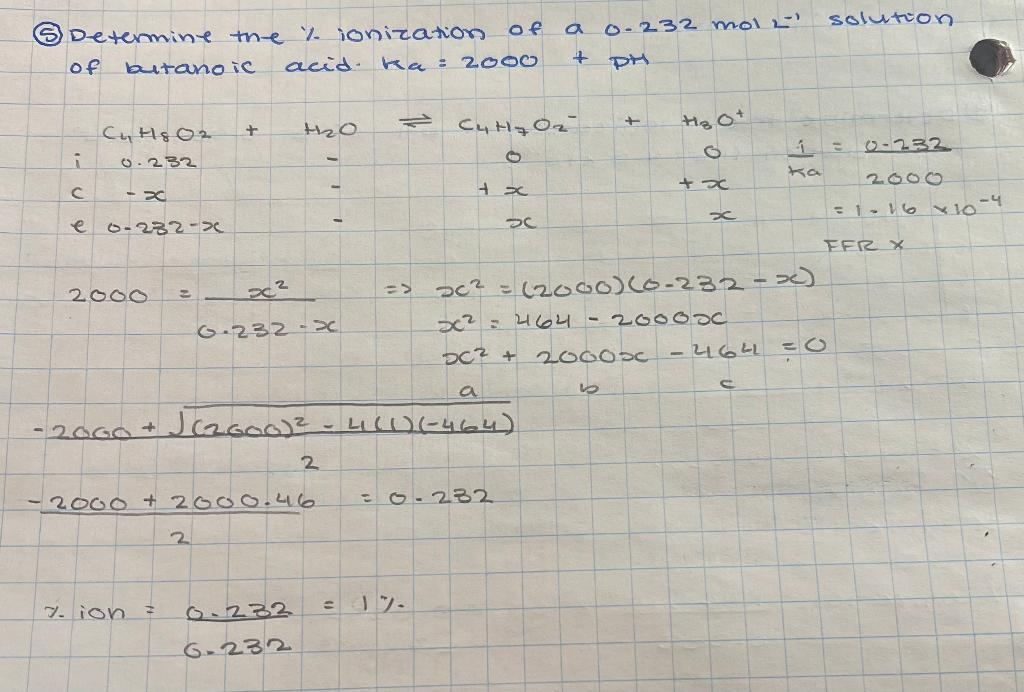 ⑤ Determine the % ionization of a 0.232 mol L⁻¹ solution
of butanoic acid. Ka = 2000 + pH
C₄H₈O₂ + H₂O ⇌ C₄H₇O₂⁻ + H₃O⁺
i 0.232 - 0 0
c -x - +x +x
e 0.232-x - x x
i/Ka = 0.232/2000
= 1.16 x10⁻⁴
FFR x
2000 = x²/(0.232-x) => x² = (2000)(0.232-x)
x² = 464 - 2000x
x² + 2000x - 464 = 0
a b c
(-2000 + √((2000)² - 4(1)(-464)))/2
(-2000 + 2000.46)/2 = 0.232
% ion = 0.232/0.232 = 1%